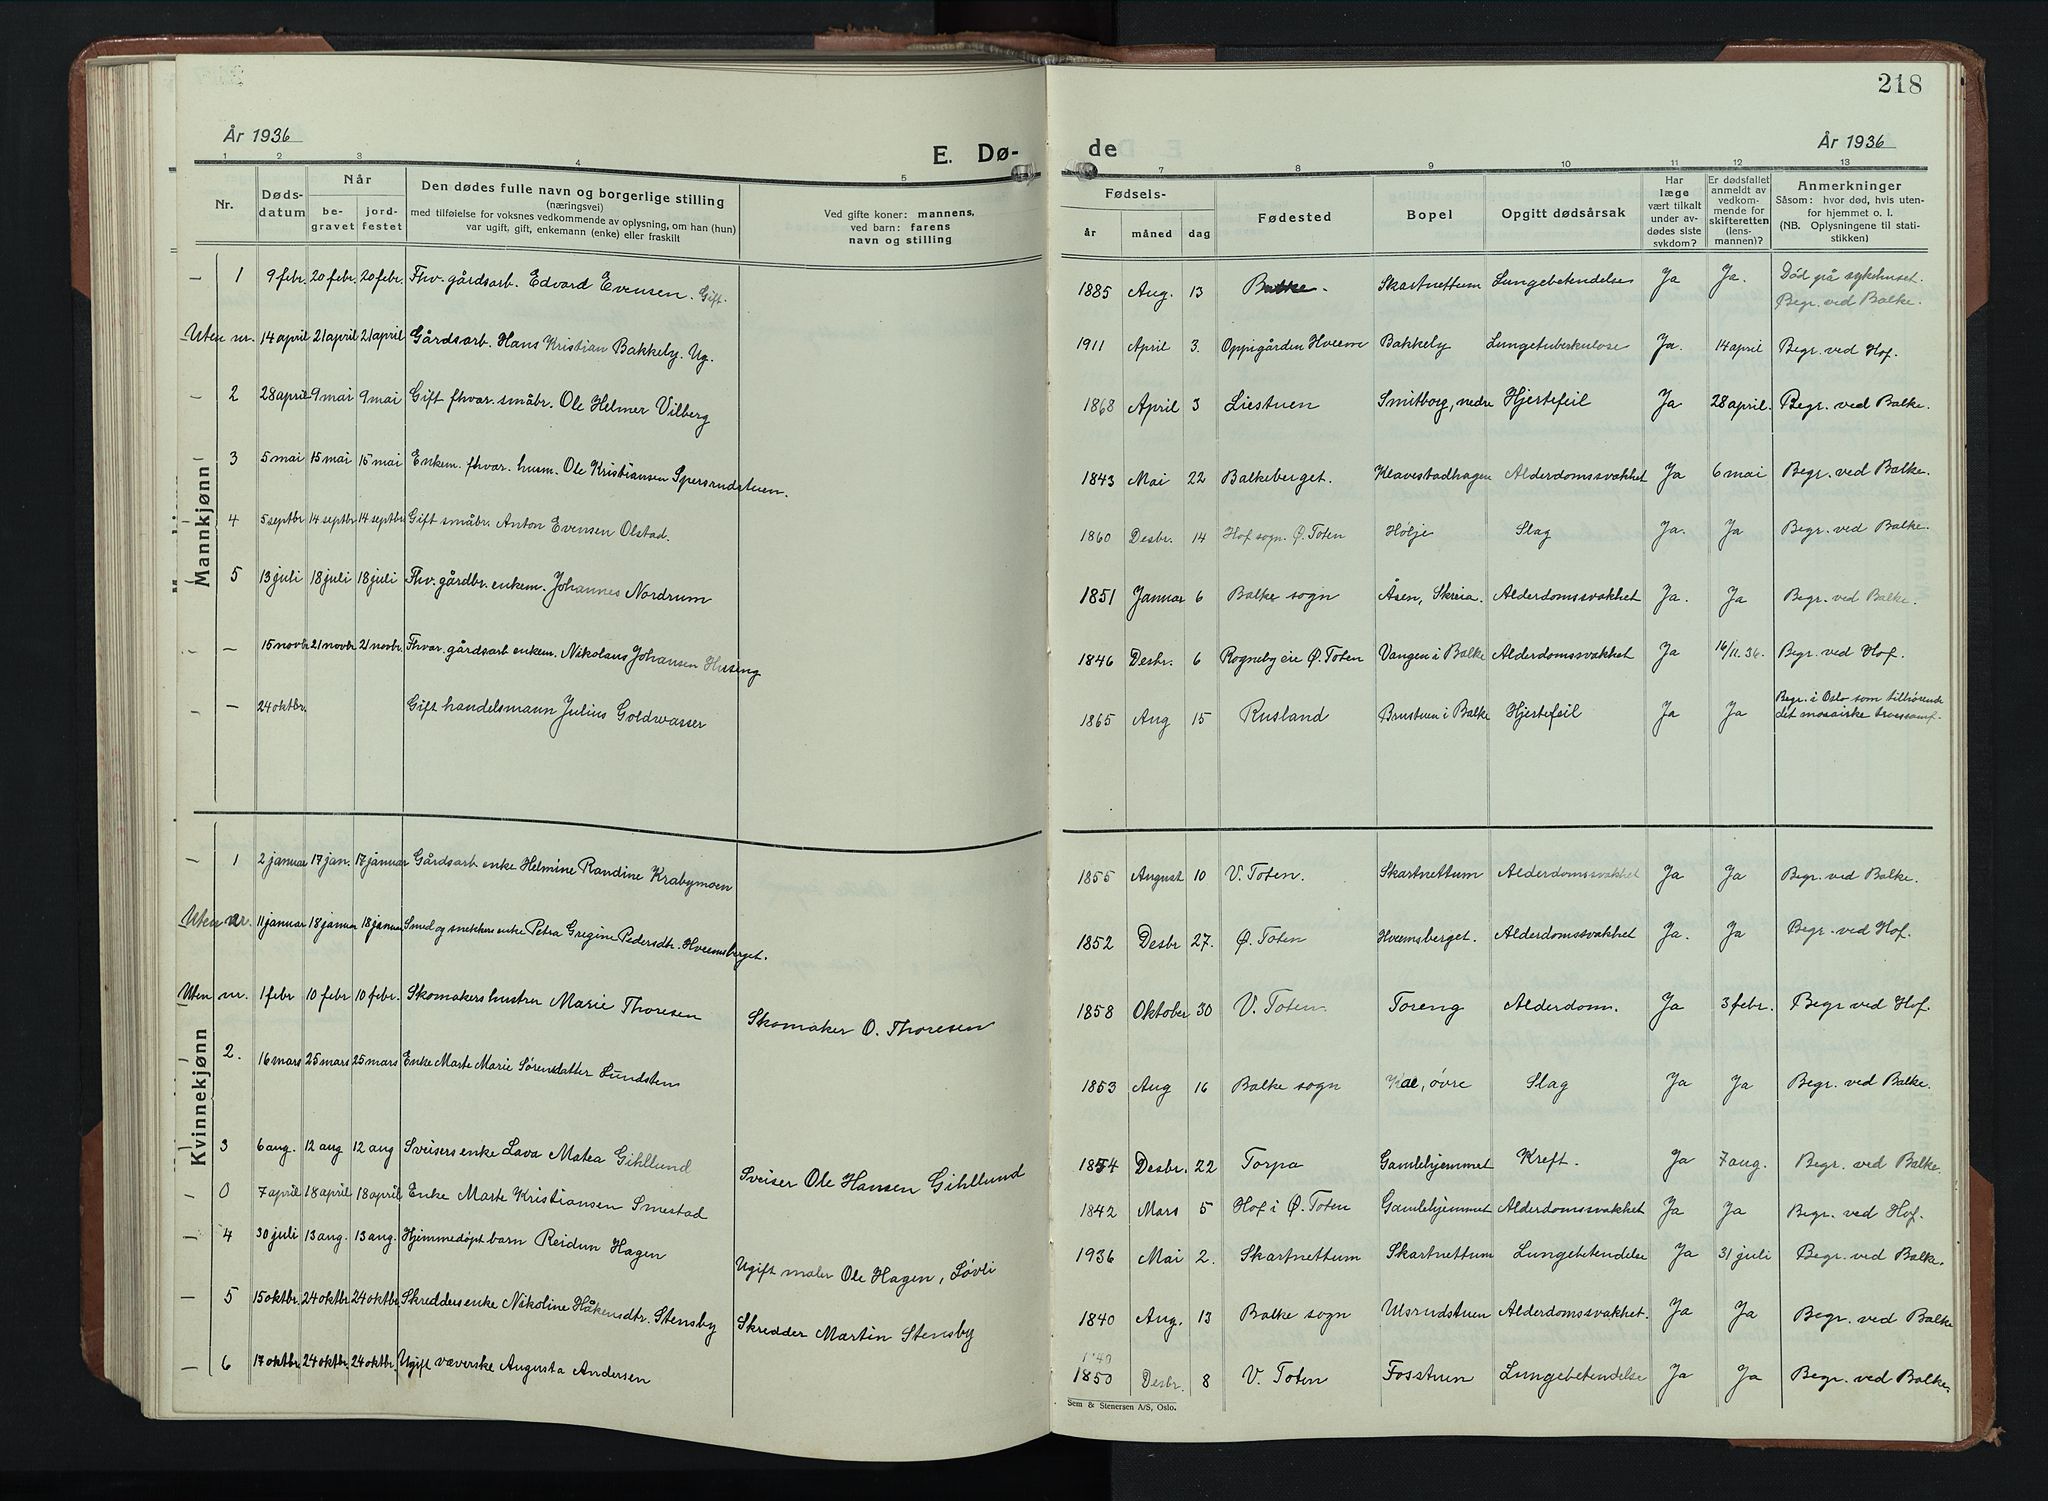 218
År 1936
E. Dø-
de
År 1936
1 2 3 4 5
7 8 9 10 11 12 13
Nr.
Døds-
datum
Når
be-
gravet
jord-
festet
Den dødes fulle navn og borgerlige stilling
(næringsvei)
med tilføielse for voksnes vedkommende av oplysning, om han (hun)
var ugift, gift, enkemann (enke) eller fraskilt
Ved gifte koner: mannens,
ved barn: farens
navn og stilling
Fødsels-
år måned dag
Fødested
Bopel
Opgitt dødsårsak
Har
læge
vært tilkalt
under av-
dødes siste
sykdom?
Er dødsfallet
anmeldt av
vedkom-
mende for
skifteretten
(lens-
mannen)?
Anmerkninger
Såsom: hvor død, hvis uten-
for hjemmet o. l.
(NB. Oplysningene til stati-
stikken)
Mannkjønn
— 1 9 febr. 20 febr. 20 febr. Fhv. gårdsarb. Edvard Evensen. Gift. 1885 Aug. 13 Balke. Skartnettum Lungebetendelse Ja Ja. Død på sykehuset.
Begr. ved Balke.
Uten nr. 14 april 21 april 21 april Gårdsarb. Hans Kristian Bakkely. Ug. 1911 April 3. Oppigården Hveem Bakkely Lungetuberkulose Ja. 14 april Begr. ved Hof.
— 2 28 april 9 mai 9 mai Gift fhvar. småbr. Ole Helmer Vilberg 1868 April 3 Liestuen Smitborg, nedre Hjertefeil Ja 28 april. Begr. ved Balke.
3 5 mai 15 mai 15 mai Enkem. fhvar. husm. Ole Kristiansen Spersrudstuen. 1843 Mai 22 Balkeberget. Klavestadhagen Alderdomssvakhet Ja 6 mai Begr. ved Balke.
4 5 septbr 14 septbr 14 septbr Gift småbr. Anton Evensen Olstad. 1860 Desbr. 14 Hof sogn. Ø. Toten Hølje Slag Ja. Ja Begr. ved Balke.
5 13 juli 18 juli 18 juli Fhv. gårdbr. enkem. Johannes Nordrum 1851 Januar 6 Balke sogn Åsen, Skreia. Alderdomssvakhet Ja. Ja Begr. ved Balke.
— 15 novbr 21 novbr 21 novbr. Fhvar. gårdsarb enkem. Nikolaus Johansen Huseng 1846 Desbr. 6 Rogneby eie Ø. Toten Vangen i Balke Alderdomssvakhet Ja 16/11. 36. Begr. ved Hof.
— 24 oktbr. Gift handelsmann Julius Goldwasser 1865 Aug 15 Rusland Brustuen i Balke Hjertefeil Ja Ja Begr. i Oslo som tilhørende
det mosaiske trossamf.
Kvinnekjønn
— 1 2 januar 17 jan. 17 januar Gårdsarb enke Helmine Randine Krabymoen 1855 August 10 V. Toten. Skartnettum Alderdomssvakhet Ja Ja Begr. ved Balke.
Uten nr. 11 januar 18 januar 18 januar Smed og snekkers enke Petra Gregine Pedersdtr. Hveemsberget. 1852 Desbr 27. Ø. Toten Hveemsberget. Alderdomssvakhet Ja. Ja Begr. ved Hof.
Uten nr. 1 febr 10 febr 10 febr. Skomakers hustru Marie Thoresen Skomaker O. Thoresen 1858 Oktober 30 V. Toten. Toreng Alderdom. Ja 3 febr. Begr. ved Hof.
2. 16 mars 25 mars 25 mars Enke Marte Marie Sørensdatter Sundsten 1853 Aug 16 Balke sogn Kae, øvre Slag Ja Ja Begr. ved Balke.
3 6 aug. 12 aug 12 aug Sveisers enke Lava Matea Gihllund Sveiser Ole Hansen Gihllund 1854 Desbr. 22 Torpa Gamlehjemmet Kreft. Ja 7 aug. Begr. ved Balke.
— 0 7 april 18 april 18 april Enke Marte Kristiansen Smestad 1842 Mars 5 Hof i Ø. Toten Gamlehjemmet Alderdomssvakhet Ja Ja Begr. ved Hof.
— 4 30 juli 13 aug. 13 aug. Hjemmedøpt barn Reidun Hagen Ugift maler Ole Hagen, Løvli 1936 Mai 2. Skartnettum Skartnettum Lungebetendelse Ja 31 juli Begr. ved Balke.
— 5 15 oktbr. 24 oktbr 24 oktbr Skredders enke Nikoline Håkensdtr. Stensby Skredder Martin Stensby 1840 Aug. 13 Balke sogn Usrudstuen Alderdomssvakhet. Ja Ja Begr. ved Balke
— 6 17 oktbr. 24 oktbr 24 oktbr. Ugift væverske Augusta Andersen 1850 Desbr. 8 V. Toten Fosstuen Lungebetendelse Ja Ja Begr. ved Balke.
Sem & Stenersen A/S, Oslo.